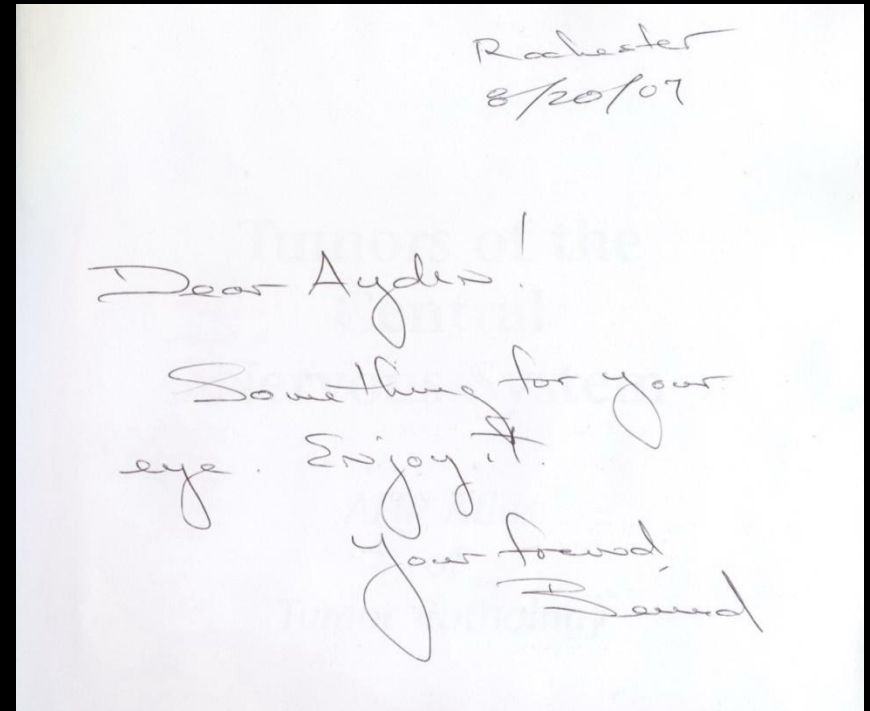 Rochester
8/20/07
Dear Aydin!
Something for your
eye. Enjoy it.
Your friend,
Bernd
Tumors of the
Central
Nervous System
AFIP Atlas
of
Tumor Pathology